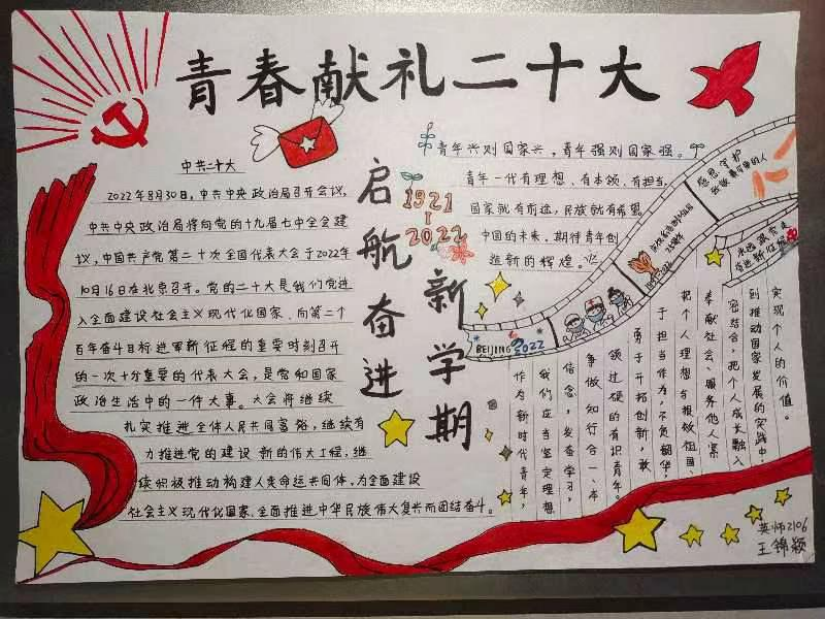 青春献礼二十大
中共二十大
2022年8月30日,中共中央政治局召开会议,
中共中央政治局将向党的十九届七中全会建
议,中国共产党第二十次全国代表大会于2022年
10月16日在北京召开。党的二十大是我们党进
入全面建设社会主义现代化国家、向第二个
百年奋斗目标进军新征程的重要时刻召开
的一次十分重要的代表大会,是党和国家
政治生活中的一件大事。大会将继续
扎实推进全体人民共同富裕,继续有
力推进党的建设新的伟大工程,继
续积极推动构建人类命运共同体,为全面建设
社会主义现代化国家、全面推进中华民族伟大复兴而团结奋斗。
启航奋进
新学期
1921
2022
青年兴则国家兴,青年强则国家强。
青年一代有理想、有本领、有担当,
国家就有前途,民族就有希望
中国的未来,期待青年创
造新的辉煌。
感恩守护
BEIJING 2022
作为新时代青年,
我们应当坚定理想
信念,发奋学习,
争做知行合一、本
领过硬的有识青年。
勇于开拓创新,敢
于担当作为,不负韶华,
把个人理想与报效祖国、
奉献社会、服务他人紧
密结合,把个人成长融入
到推动国家发展的实践中,
实现个人的价值。
英师2106
王锦颖